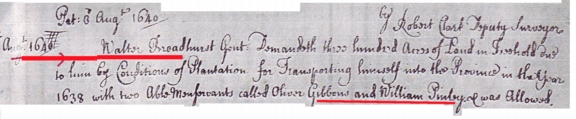 Pat: 3 Augst 1640
by Robert Clark Deputy Surveyor
Augst 1640 Walter Broadhurst Gent. Demandeth three hundred Acres of Land in Freehold due
to him by Conditions of Plantation for Transporting himself into the Province in the Year
1638 with two Able Menservants called Oliver Gibbons and William Pinley, & was Allowed.